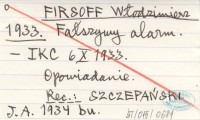 FIRSOFF Włodzimierz
1933. Fałszywy alarm.
— IKC 6 X 1933.
Opowiadanie.
Rec.: SZCZEPAŃSKI
J.A. 1934 bu.